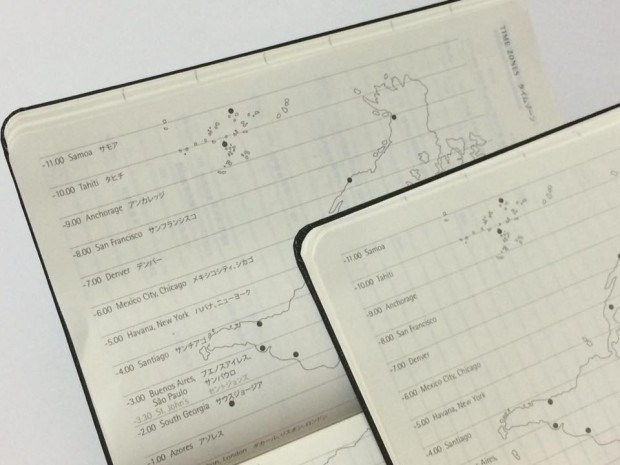 TIME ZONES タイムゾーン
-11.00 Samoa サモア
-10.00 Tahiti タヒチ
-9.00 Anchorage アンカレッジ
-8.00 San Francisco サンフランシスコ
-7.00 Denver デンバー
-6.00 Mexico City, Chicago メキシコシティ, シカゴ
-5.00 Havana, New York ハバナ, ニューヨーク
-4.00 Santiago サンチアゴ
-3.00 Buenos Aires, ブエノスアイレス,
São Paulo サンパウロ
-3.30 St. John's セントジョンズ
-2.00 South Georgia サウスジョージア
-1.00 Azores アゾレス
London
-11.00 Samoa
-10.00 Tahiti
-9.00 Anchorage
-8.00 San Francisco
-7.00 Denver
-6.00 Mexico City, Chicago
-5.00 Havana, New York
-4.00 Santiago
Buenos Aires,